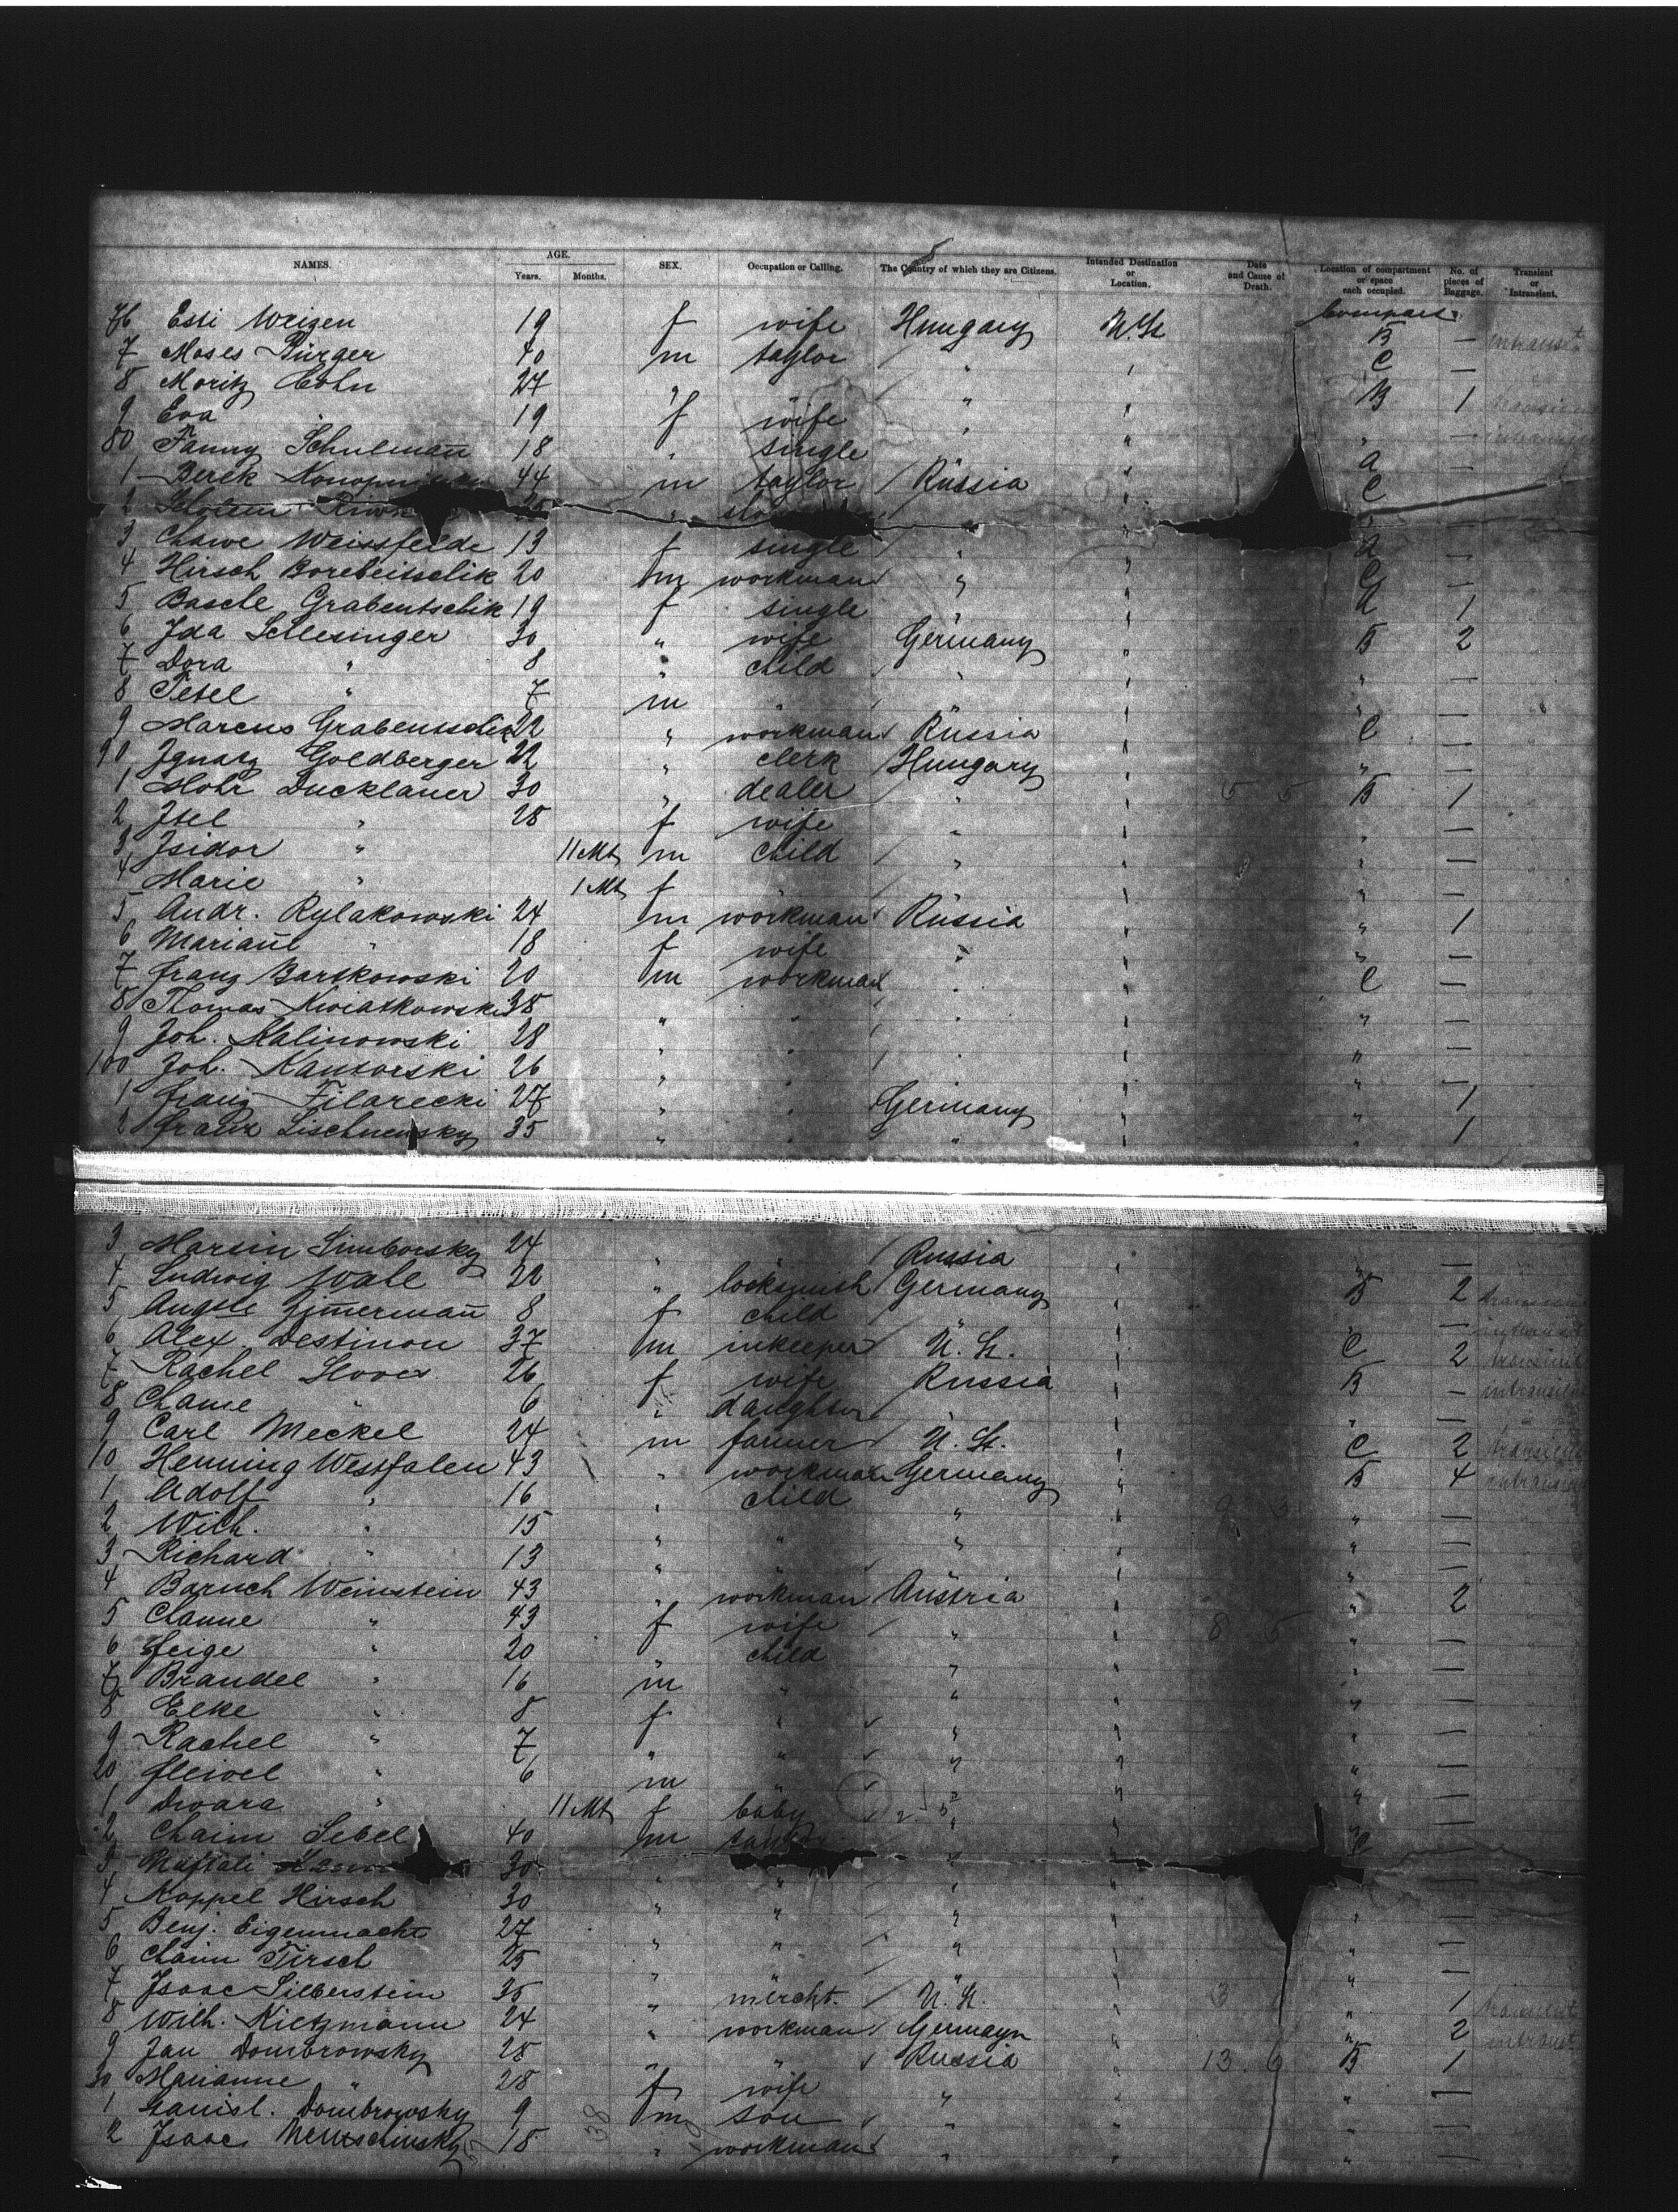 NAMES. AGE. Years. Months. SEX. Occupation or Calling. The Country of which they are Citizens. Intended Destination or Location. Date and Cause of Death. Location of compartment or space each occupied. No. of pieces of Baggage. Transient or Intransient.
76 Essi Weizen 19 f wife Hungary U.St. Compart. B —
7 Moses Bürger 40 m taylor " " C —
8 Moritz Cohn 27 " " " B 1
9 Eva 19 f wife " " " —
80 Fanny Schulman̄ 18 " single " a —
1 Berek 44 m taylor Russia " C
2
3 Chawe Weissfelde 13 f single " " a —
4 Hirsch Borebeitschik 20 m workman " " C —
5 Basche Grabentschik 19 f single " a 1
6 Ida Schlesinger 30 " wife Germany " B 2
7 Dora " 8 " child " " " —
8 Pesel " 7 m " " " " —
9 Marcus Grabentschik 22 " workman Russia " C —
90 Ignatz Goldberger 22 " clerk Hungary " " —
1 Mohr Ducklauer 30 " dealer " " B 1
2 Isel " 28 f wife " " " —
3 Isidor " 11 Mt m child " " " —
4 Marie " 1 Mt f " " " —
5 Andr. Rylakowski 24 m workman Russia " " 1
6 Marian̄e " 18 f wife " " " —
7 franz Bartkowski 20 m workman " " C —
8 Thomas Kwiatkowski 38 " " " " " —
9 Joh. Malinowski 28 " " " " " —
100 Joh. Kantorski 26 " " " " " —
1 franz Filarecki 27 " " Germany " " 1
2 franz Lischnewsky 35 " " " " " 1
3 Martin Simborsky 24 " " Russia " " —
4 Ludwig Wahl 22 " locksmish Germany " B 2
5 Auguste Zim̄erman̄ 8 f child " " " —
6 Alex Destinon 37 m inkeeper U. St. " C 2
7 Rachel 26 f wife Russia " B —
8 Chane " 6 " daughter " " " —
9 Carl Meckel 24 m farmer U. St. " C 2
10 Henning Westfalen 43 " workman Germany " B 4
1 Adolf " 16 " child " " " —
2 Wilh. " 15 " " " " " —
3 Richard " 13 " " " " " —
4 Baruch Weinstein 43 " workman Austria " " 2
5 Channe " 43 f wife " " " —
6 feige " 20 " child " " " —
7 Brandel " 16 m " " " " —
8 Elke " 8 f " " " " —
9 Rachel " 7 " " " " " —
20 fleiwel " 6 m " " " " —
1 Dwara " 11 Mt f baby " " " —
2 Chaim Sebel 40 m " " C —
3 Naftali 30 " " " "
4 Koppel Hirsch 30 " " " " " —
5 Benj. Eigenmacht 27 " " " " " —
6 Chaim Tirsch 25 " " " " " —
7 Isaac Silberstein 35 " mercht. U. St. " " 1
8 Wilh. Kietzmann 24 " workman Germayn " " 2
9 Jan Dombrowsky 28 " " Russia " B 1
30 Marianne " 28 f wife " " " —
1 Stanisl. Dombrowsky 9 m son " " " —
2 Isaac 18 " workman " " " —